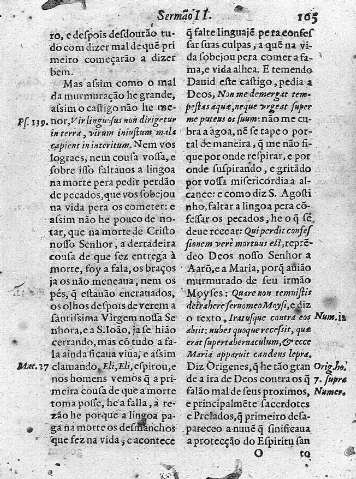 Sermão II.
165
ro, e despois desdourão tu-
do com dizer mal de quẽ pri
meiro começarão a dizer
bem.
Mas assim como o mal
da murmuração he grande,
assim o castigo não he me-
Ps. 139.
nor, Vir linguosus non dirigetur
in terra, virum iniustum mala
capient in interitum. Nem vos
lograes, nem cousa vossa, e
sobre isso faltauos a lingoa
na morte pera pedir perdão
de pecados, que vos sobejou
na vida pera os cometer: e
assim não he pouco de no-
tar, que na morte de Cristo
nosso Senhor, a derradeira
cousa de que sez entrega à
morte, foy a fala, os braços
ja os não meneaua, nem os
pés, q̃ estauão encrauados,
os olhos despois de verem a
santissima Virgem nossa Se
nhora, e a S. Ioão, ja se hião
cerrando, mas cõ tudo a fa-
la ainda ficaua viua, e assim
Mat. 27
clamando, Eli, Eli, espirou, e
nos homens vemos q̃ a pri
meira cousa de que a morte
toma posse, he a falla, a re-
zão he porque a lingoa pa-
ga na morte os desmanchos
que fez na vida, e acontece
q̃ falte linguajẽ pera confes
sar suas culpas, a quẽ na vi-
da sobejou pera comer a fa-
ma, e vida alhea. E temendo
Dauid este castigo, pedia a
Deos, Non me demergat tem-
pestas aquæ, neque vrgeat super
me puteus os suum: não me cu-
bra a agoa, nẽ se tape o por-
tal de maneira, q̃ me não fi-
que por onde respirar, e por
onde suspirando, e gritãdo
por vossa misericordia a al-
cance: e como diz S. Agosti
nho, faltar a lingoa pera cõ-
fessar os pecados, he o q̃ se
deue recear: Qui perdit confes
sionem verè mortuus est, reprẽ-
deo Deos nosso Senhor a
Aarõ, e a Maria, porq̃ assião
murmurado de seu irmão
Moyses: Quare non temuistis
detrahere seruo meo Moysi, e diz
Num. 12
o texto, Iratusque contra eos
abiit: nubes quoque recessit, quæ
erat super tabernaculum, & ecce
Maria apparuit candens lepra,
Orig. ho.
7. supra
Numer.
Diz Origenes, q̃ he tão gran
de a ira de Deos contra os q̃
falão mal de seus proximos,
e principalmẽte sacerdotes
e Prelados, q̃ primeiro desa-
pareceo a nuuẽ q̃ sinificaua
a protecção do Espiritu san
O
to